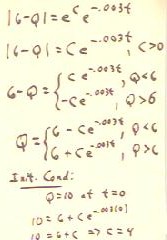 |6-Q| = e^c e^-.003t
|6-Q| = C e^-.003t, C>0
6-Q = { C e^-.003t, Q<6
-C e^-.003t, Q>6
Q = { 6 - C e^-.003t, Q<6
6 + C e^-.003t, Q>6
Init. Cond:
Q=10 at t=0
10 = 6 + C e^-.003(0)
10 = 6+C => C=4